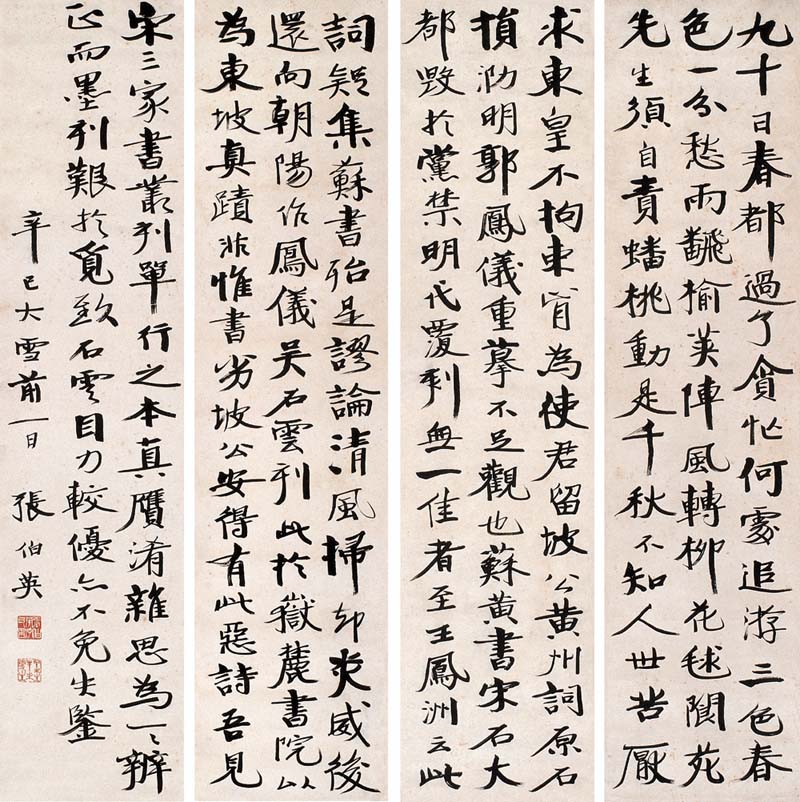 九十日春都過了貪忙何處追游三色春
色一分愁雨飜榆莢陣風轉柳花毬閬苑
先生須自責蟠桃動是千秋不知人世苦厭
求東皇不拘束肎為使君留坡公黃州詞原石
損泐明郭鳳儀重摹不足觀也蘇黃書宋石大
都毀於黨禁明代覆刻無一佳者至王鳳洲云此
詞疑集蘇書殆是謬論清風掃却炎威後
還向朝陽作鳳儀吴石雲刊此於嶽麓書院以
為東坡真蹟非惟書劣坡公安得有此惡詩吾見
宋三家書叢刊單行之本真贗淆雜思為一一辨
正而墨刊艱於覓致石雲目力較優亦不免失鑒
辛巳大雪前一日 張伯英